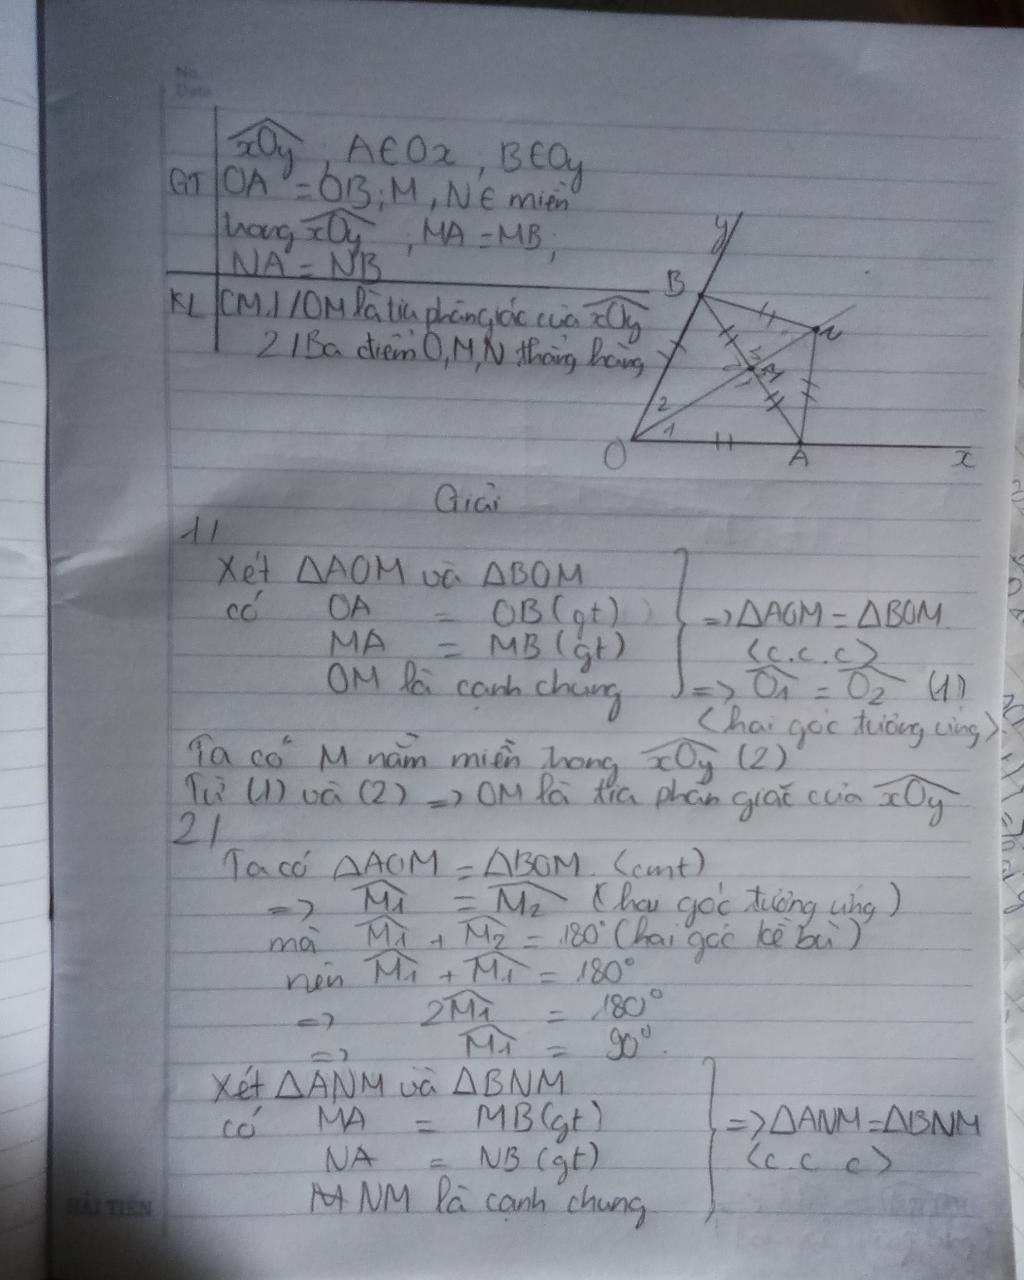 No.
Date
xOy, A∈Ox, B∈Oy
GT OA = OB; M, N ∈ miền
trong xOy, MA = MB;
NA = NB
KL CM. 1/ OM là tia phân giác của xOy
2/ Ba điểm O, M, N thẳng hàng
y
B
N
M
2
1
O
A
x
Giải
1/
Xét ΔAOM và ΔBOM
có OA = OB (gt) => ΔAOM = ΔBOM
MA = MB (gt) (c.c.c)
OM là cạnh chung => O1 = O2 (1)
(hai góc tương ứng)
Ta có M nằm miền trong xOy (2)
Từ (1) và (2) => OM là tia phân giác của xOy
2/
Ta có ΔAOM = ΔBOM (cmt)
=> M1 = M2 (hai góc tương ứng)
mà M1 + M2 = 180° (hai góc kề bù)
nên M1 + M1 = 180°
=> 2M1 = 180°
=> M1 = 90°.
Xét ΔANM và ΔBNM
có MA = MB (gt) => ΔANM = ΔBNM
NA = NB (gt) (c c c)
NM là cạnh chung
HẢI TIẾN